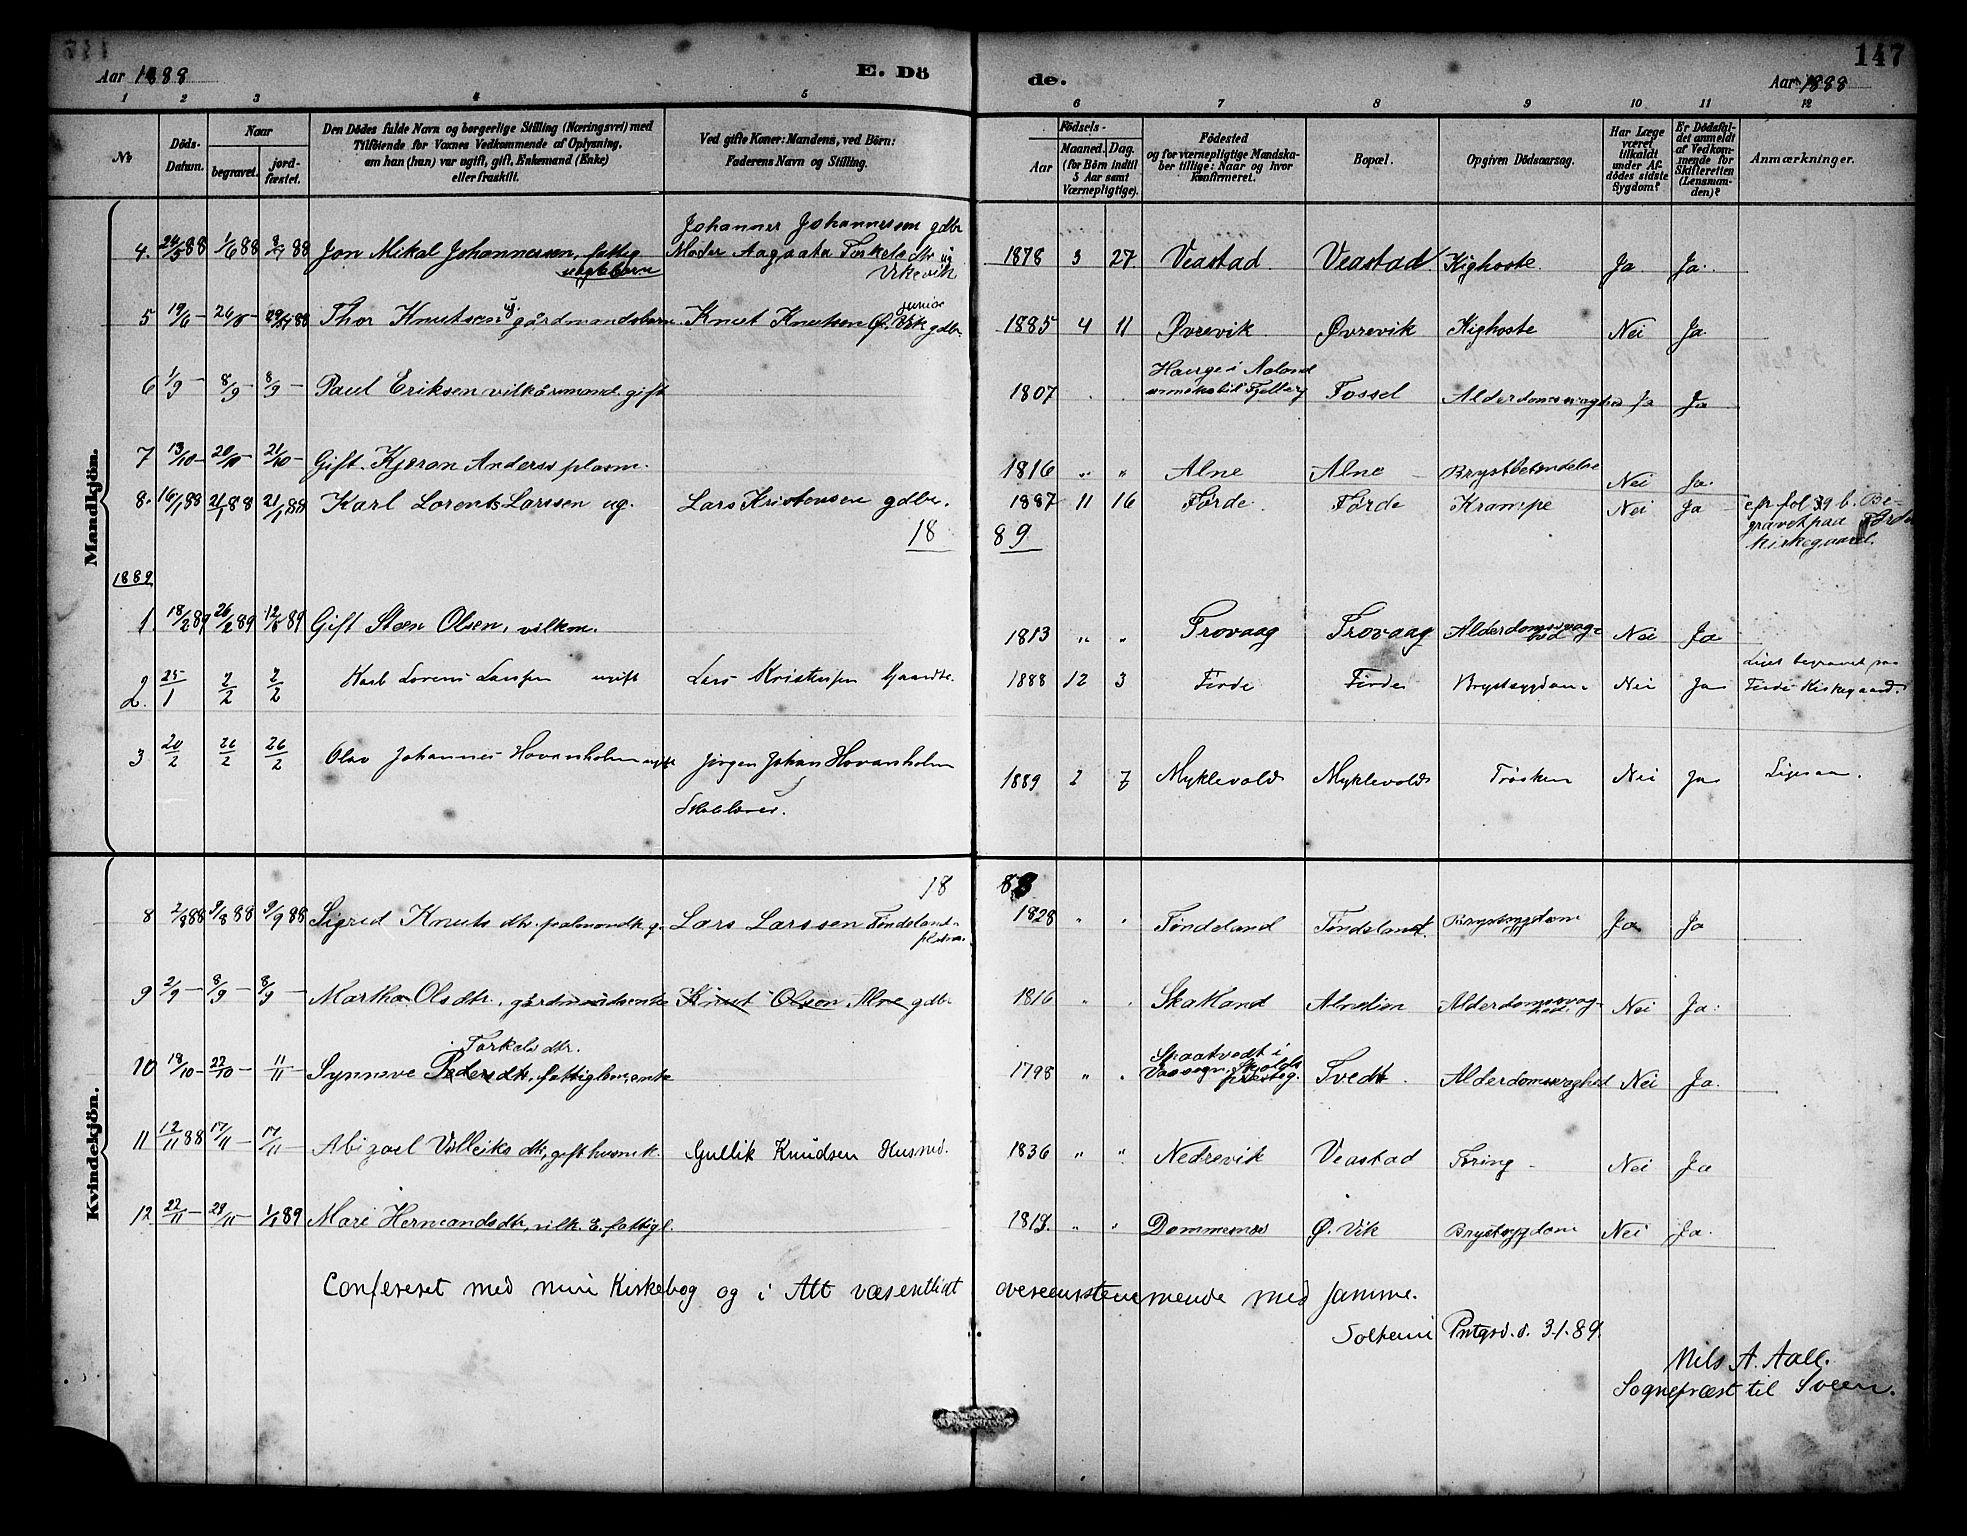 147
Aar 1888
E. Dö
de.
Aar 1888
1 2 3 4 5 6 7 8 9 10 11 12
No
Döds-
Datum.
Naar
begravet.
jord-
fæstet.
Den Dödes fulde Navn og borgerlige Stilling (Næringsvei) med
Tilföiende for Voxnes Vedkommende af Oplysning,
om han (hun) var ugift, gift, Enkemand (Enke)
eller fraskilt.
Ved gifte Koner: Mandens, ved Börn:
Faderens Navn og Stilling.
Födsels-
Aar
Maaned. Dag.
(for Börn indtil
5 Aar samt
Værnepligtige).
Födested
og for værnepligtige Mandska-
ber tillige: Naar og hvor
konfirmeret.
Bopæl.
Opgiven Dödsaarsag.
Har Læge
været
tilkaldt
under Af-
dödes sidste
Sygdom?
Er Dödsfal-
det anmeldt
af Vedkom-
mende for
Skifteretten
(Lensman-
den)?
Anmærkninger.
Mandkjön.
Johannes Johannessen gdbr
4. 24/5 88 1/6 88 8/7 88 Jon Mikal Johannessen, fattig Moder Aagaata Torkelsdtr ug 1878 3 27 Veastad Veastad Kighoste Ja Ja
uægtebarn Vikevik
junior
5 19/6 26/6 29/7 88 Thor Knutsen ug gårdmandsbarn Knut Knutsen Ø. Vik gdbr. 1885 4 11 Øvrevik Øvrevik Kighoste Nei Ja
Hauge i Aaland
6 1/9 – 8/9 – 8/9 – Paul Eriksen vilkårmand gift 1807 annekstil Fjelberg Fossel Alderdomssvaghed Ja Ja
7 13/10 – 20/10 – 21/10 – Gift Kjæran Anderss plasm. 1816 " " Alne Alne Brystbetændelse Nei Ja
8. 16/1 88 21/1 88 21/1 88 Karl Lorents Larssen ug. Lars Kristensen gdbr. 1887 11 16 Førde Førde Krampe Nei Ja cfr fol 39 b. Be-
gravet paa Førde
Kirkegaard.
18 89
1889
1. 18/2 89 26/2 89 12/6 89 Gift Sten Olsen, vilkm. 1813 " " Trovaag Trovaag Alderdomssvag-
hed Nei Ja
2. 25/1 2/2 2/2 Karl Lorens Larssen ugift Lars Kristenssen Gaardbr. 1888 12 3 Førde Førde Brystsygdom Nei Ja Liget begravet paa
Førde Kirkegaard.
3 20/2 26/2 26/2 Olav Johannes Hovanholm ugift Jörgen Johan Hovanholm 1889 2 7 Myklevold Myklevold Trøsken Nei Ja Ligesaa.
Skolelærer.
Kvindekjön.
18 88
8 2/8 88 9/8 88 9/9 88 Sigred Knutsdtr. g. Lars Larssen Tøndeland 1828 " " Tøndeland Tøndeland Brystsygdom Ja Ja
9 2/9 – 8/9 – 8/9 – Martha Olsdtr., gårdmandsenke Knut Olson Alne gdbr 1816 " " Skakland Alne Alderdomssvag-
hed Nei Ja
Torkelsdtr.
10 18/10 – 22/10 – 11/11 Synneve Pedersdtr, fattiglem, enke 1798 " " Spaatvedt i
Vassogn, Skjolds
præsteg. Tvedt Alderdomssvaghed Nei Ja
11 12/11 88 17/11 – 17/11 – Abigael Villeiksdtr, gift Gullik Knudsen Husmd. 1836 " " Nedrevik Veastad Tæring Nei Ja
12 22/11 – 29/11 – 1/1 89 Mari Hermandsdtr, vilk. E. fattigl. " " Dommesnes Ø. Vik Brystsygdom Nei Ja
Confereret med min Kirkebog og i Alt væsentligt overeensstemmende med samme.
Solheim Pntgrd. d. 3.1.89.
Nils A. Aall.
Sognepræst til Sveen.